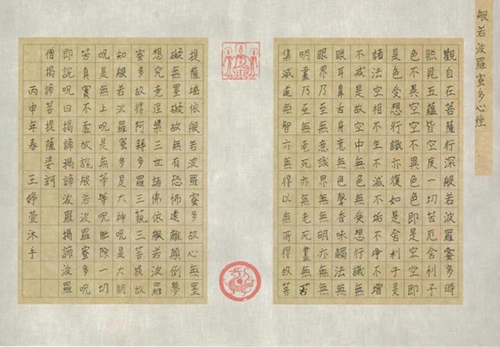 般若波羅蜜多心經
觀自在菩薩行深般若波羅蜜多時
照見五蘊皆空度一切苦厄舍利子
色不異空空不異色色即是空空即
是色受想行識亦復如是舍利子是
諸法空相不生不滅不垢不淨不增
不減是故空中無色無受想行識無
眼耳鼻舌身意無色聲香味觸法無
眼界乃至無意識界無無明亦無無
明盡乃至無老死亦無老死盡無苦
集滅道無智亦無得以無所得故菩
提薩埵依般若波羅蜜多故心無罣
礙無罣礙故無有恐怖遠離顛倒夢
想究竟涅槃三世諸佛依般若波羅
蜜多故得阿耨多羅三藐三菩提故
知般若波羅蜜多是大神咒是大明
咒是無上咒是無等等咒能除一切
苦真實不虛故說般若波羅蜜多咒
即說咒曰揭諦揭諦波羅揭諦波羅
僧揭諦菩提薩婆訶
丙申年春 王婷萱沐手